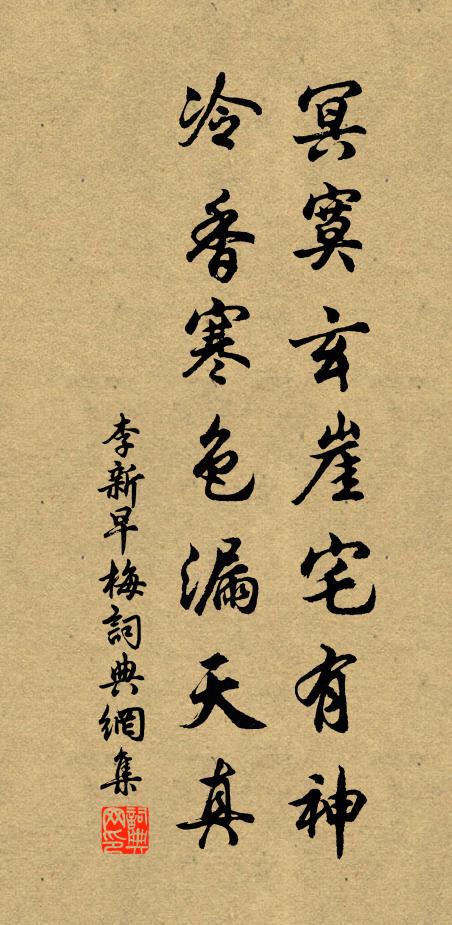 冥寞玄崖宅有神
冷香寒色漏天真
李新早梅詞典網集
詞典網印